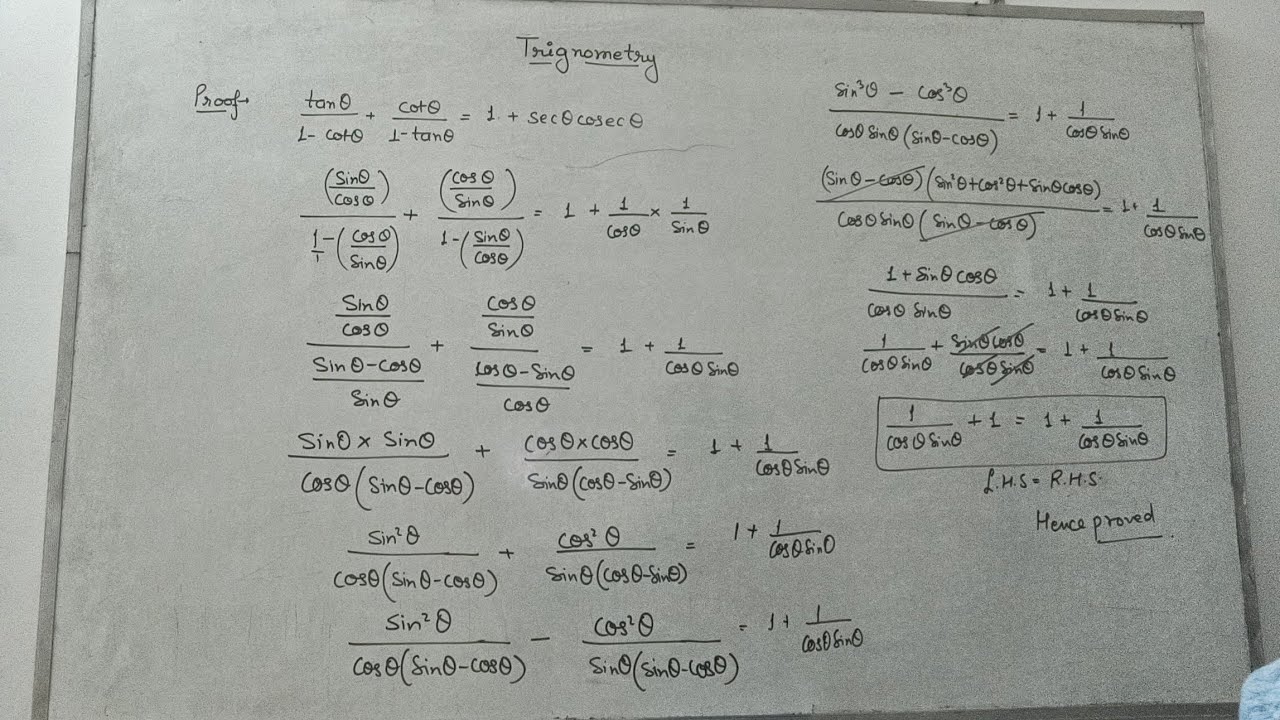 Trignometry
Proof→ tanθ/(1- cotθ) + cotθ/(1-tanθ) = 1 + secθ cosec θ
(Sinθ/cosθ)/(1/1-(cosθ/Sinθ)) + (cosθ/Sinθ)/(1-(Sinθ/cosθ)) = 1 + 1/cosθ × 1/Sinθ
(Sinθ/cosθ)/((Sinθ-cosθ)/Sinθ) + (cosθ/Sinθ)/((cosθ-Sinθ)/cosθ) = 1 + 1/(cosθ Sinθ)
(Sinθ × Sinθ)/(cosθ(Sinθ-cosθ)) + (cosθ×cosθ)/(Sinθ(cosθ-Sinθ)) = 1 + 1/(cosθSinθ)
Sin²θ/(cosθ(Sinθ-cosθ)) + cos²θ/(Sinθ(cosθ-Sinθ)) = 1 + 1/(cosθSinθ)
Sin²θ/(cosθ(Sinθ-cosθ)) - cos²θ/(Sinθ(Sinθ-cosθ)) = 1 + 1/(cosθSinθ)
(Sin³θ - cos³θ)/(cosθ Sinθ(Sinθ-cosθ)) = 1 + 1/(cosθ Sinθ)
(Sinθ-cosθ)(Sin²θ+cos²θ+Sinθcosθ)/(cosθ Sinθ(Sinθ-cosθ)) = 1+ 1/(cosθ Sinθ)
(1+Sinθ cosθ)/(cosθ Sinθ) = 1 + 1/(cosθ Sinθ)
1/(cosθ Sinθ) + (Sinθcosθ)/(cosθSinθ) = 1 + 1/(cosθ Sinθ)
1/(cosθ Sinθ) + 1 = 1 + 1/(cosθ Sinθ)
L.H.S = R.H.S.
Hence proved.